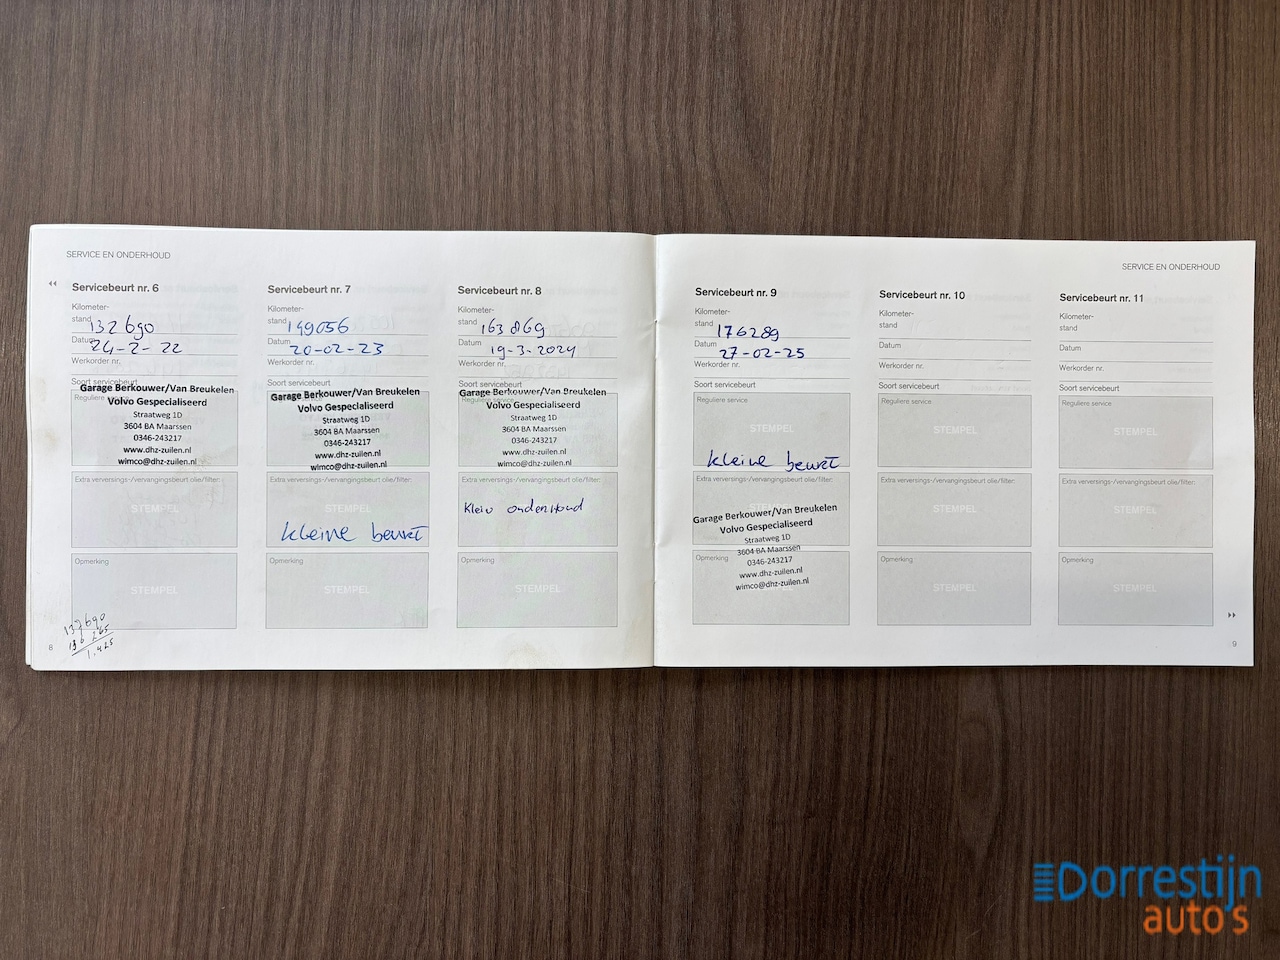 SERVICE EN ONDERHOUD
Servicebeurt nr. 6
Kilometer-
stand 132690
Datum 24-2-22
Werkorder nr.
Soort servicebeurt
Reguliere
Garage Berkouwer/Van Breukelen
Volvo Gespecialiseerd
Straatweg 1D
3604 BA Maarssen
0346-243217
www.dhz-zuilen.nl
wimco@dhz-zuilen.nl
Extra verversings-/vervangingsbeurt olie/filter:
STEMPEL
Opmerking
STEMPEL
8
Servicebeurt nr. 7
Kilometer-
stand 149056
Datum 20-02-23
Werkorder nr.
Soort servicebeurt
Garage Berkouwer/Van Breukelen
Volvo Gespecialiseerd
Straatweg 1D
3604 BA Maarssen
0346-243217
www.dhz-zuilen.nl
wimco@dhz-zuilen.nl
Extra verversings-/vervangingsbeurt olie/filter:
STEMPEL
kleine beurt
Opmerking
STEMPEL
Servicebeurt nr. 8
Kilometer-
stand 163869
Datum 19-3-2024
Werkorder nr.
Soort servicebeurt
Reguliere service
Garage Berkouwer/Van Breukelen
Volvo Gespecialiseerd
Straatweg 1D
3604 BA Maarssen
0346-243217
www.dhz-zuilen.nl
wimco@dhz-zuilen.nl
Extra verversings-/vervangingsbeurt olie/filter:
Klein onderhoud
Opmerking
STEMPEL
SERVICE EN ONDERHOUD
Servicebeurt nr. 9
Kilometer-
stand 176289
Datum 27-02-25
Werkorder nr.
Soort servicebeurt
Reguliere service
STEMPEL
kleine beurt
Extra verversings-/vervangingsbeurt olie/filter:
Garage Berkouwer/Van Breukelen
Volvo Gespecialiseerd
Straatweg 1D
3604 BA Maarssen
0346-243217
www.dhz-zuilen.nl
wimco@dhz-zuilen.nl
Opmerking
Servicebeurt nr. 10
Kilometer-
stand
Datum
Werkorder nr.
Soort servicebeurt
Reguliere service
STEMPEL
Extra verversings-/vervangingsbeurt olie/filter:
STEMPEL
Opmerking
STEMPEL
Servicebeurt nr. 11
Kilometer-
stand
Datum
Werkorder nr.
Soort servicebeurt
Reguliere service
STEMPEL
Extra verversings-/vervangingsbeurt olie/filter:
STEMPEL
Opmerking
STEMPEL
9
Dorrestijn
auto's